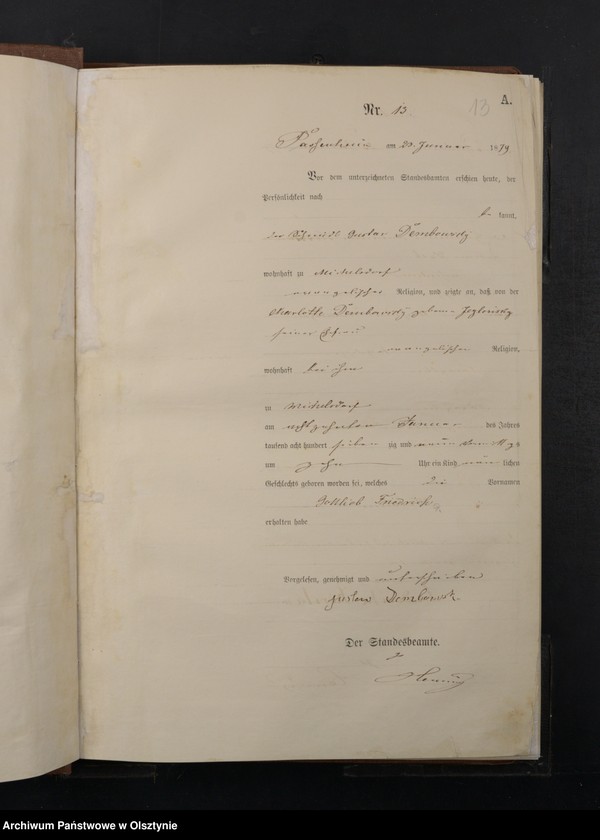 Nr. 13. 13 A.
Passenheim am 20. Januar 1879
Vor dem unterzeichneten Standesbeamten erschien heute, der
Persönlichkeit nach
be kannt,
der Gustav Dembowsky
wohnhaft zu Michelsdorf
evangelischer Religion, und zeigte an, daß von der
Charlotte Dembowsky geborne
seiner Ehefrau
evangelischer Religion,
wohnhaft bei ihm
zu Michelsdorf
am achtzehnten Januar des Jahres
tausend acht hundert sieben zig und neun
um zehn Uhr ein Kind männ lichen
Geschlechts geboren worden sei, welches die Vornamen
Gottlieb Friedrich
erhalten habe
Vorgelesen, genehmigt und unterschrieben
Gustav Dembowsk
Der Standesbeamte.
Archiwum Państwowe w Olsztynie